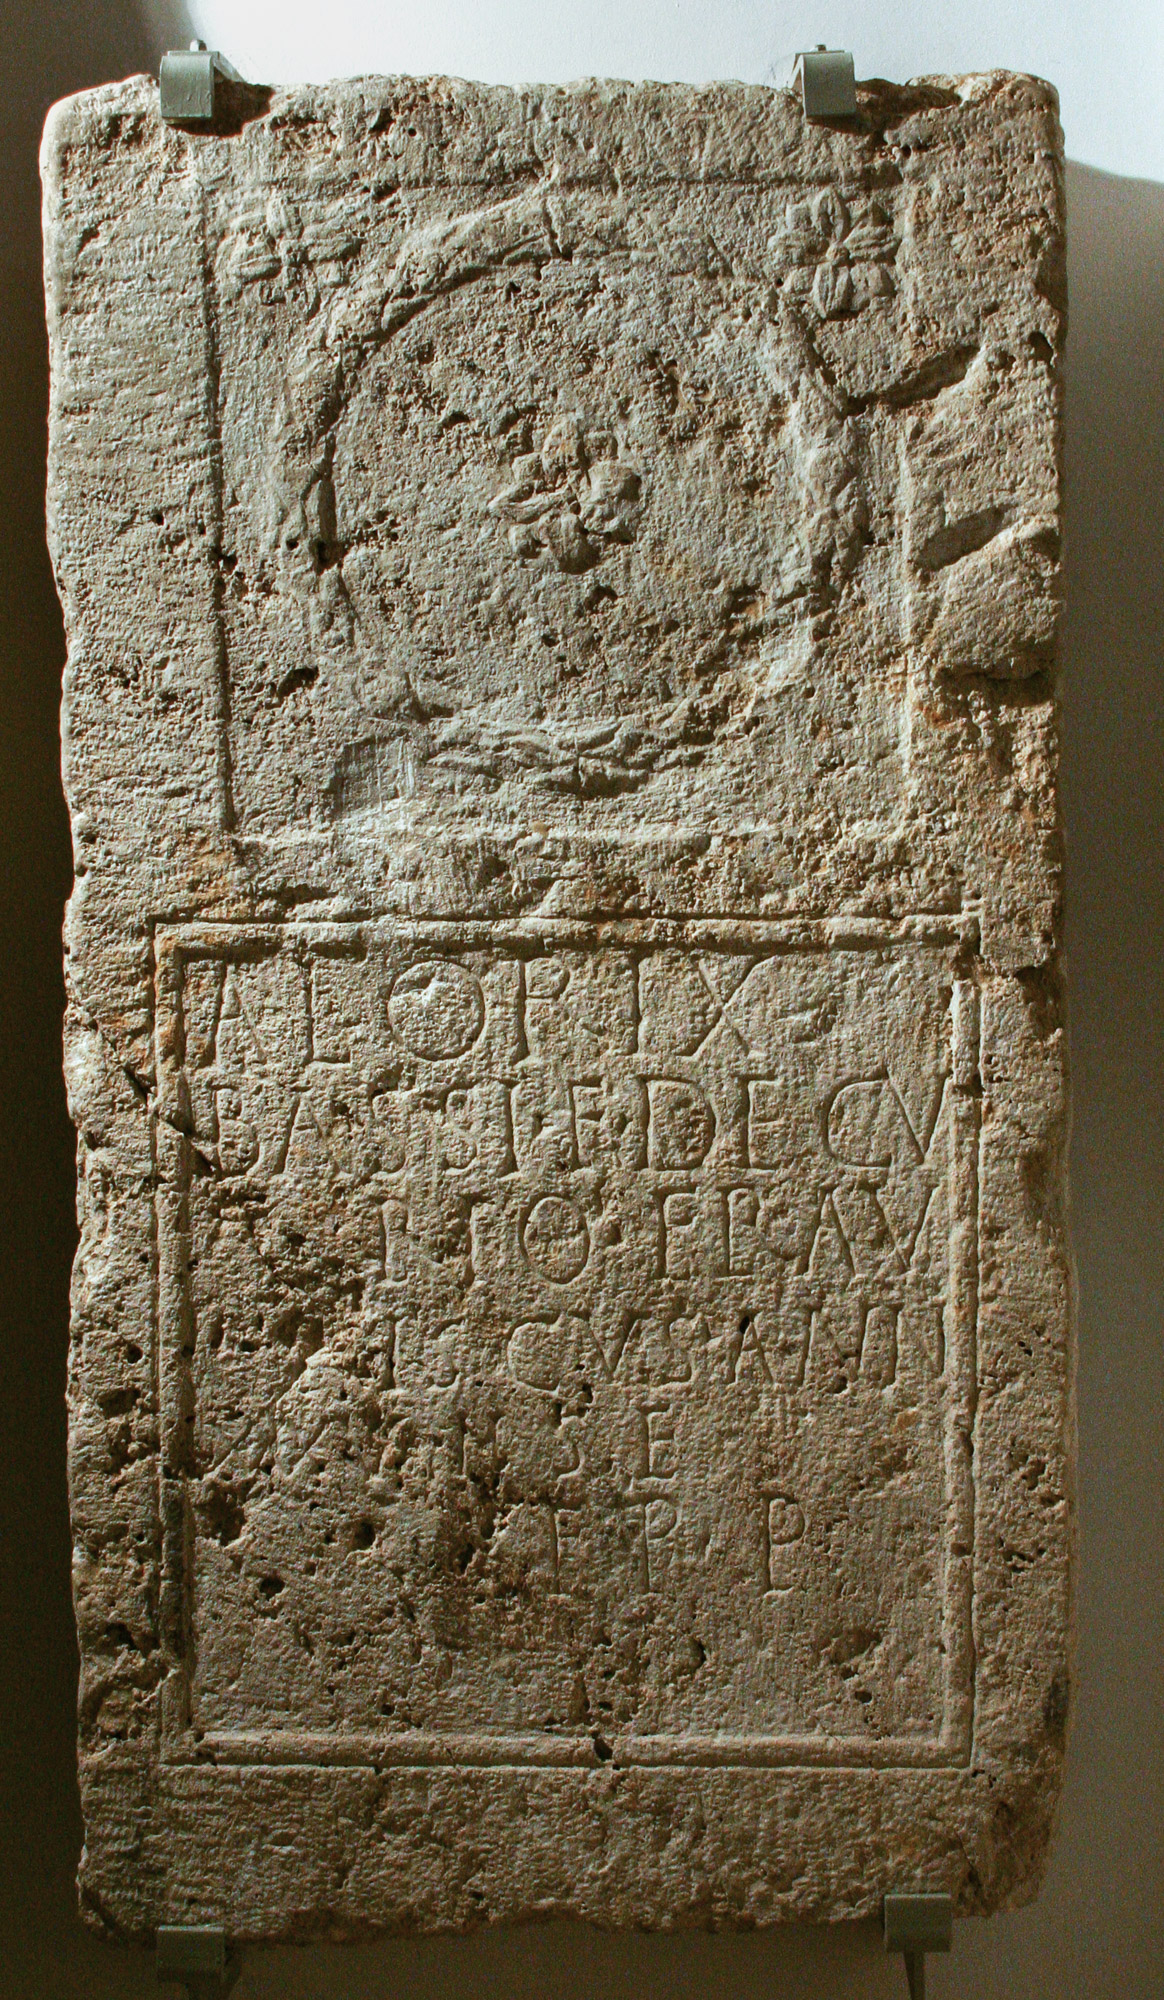 ALORIX
BASSI·F·DECV
RIO·FLAV
CVSANN
H S E
F P P